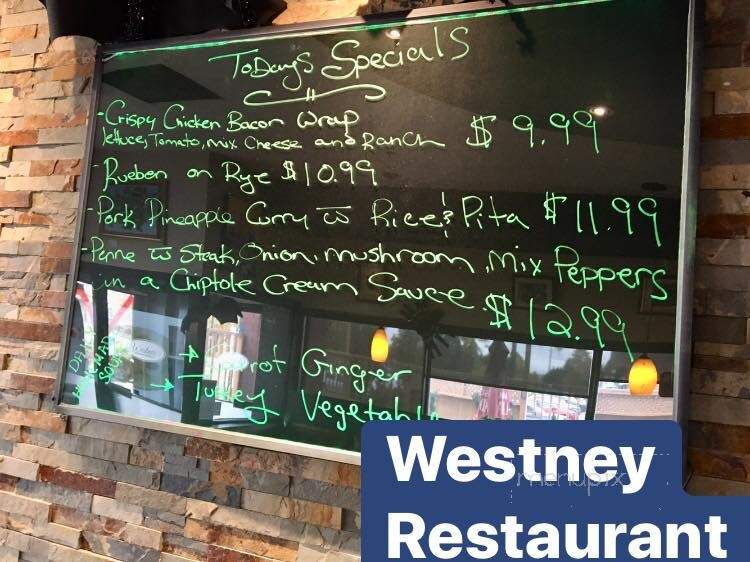 ToDay's Specials
-Crispy Chicken Bacon Wrap
lettuce, Tomato, mix Cheese and Ranch $9.99
-Rueben on Rye $10.99
-Pork Pineapple Curry w Rice & Pita $11.99
-Penne w Steak, Onion, mushroom, Mix Peppers
in a Chiptole Cream Sauce. $12.99
DAILY
SOUP
→ Ginger
→ Turkey
menupix
Westney
Restaurant